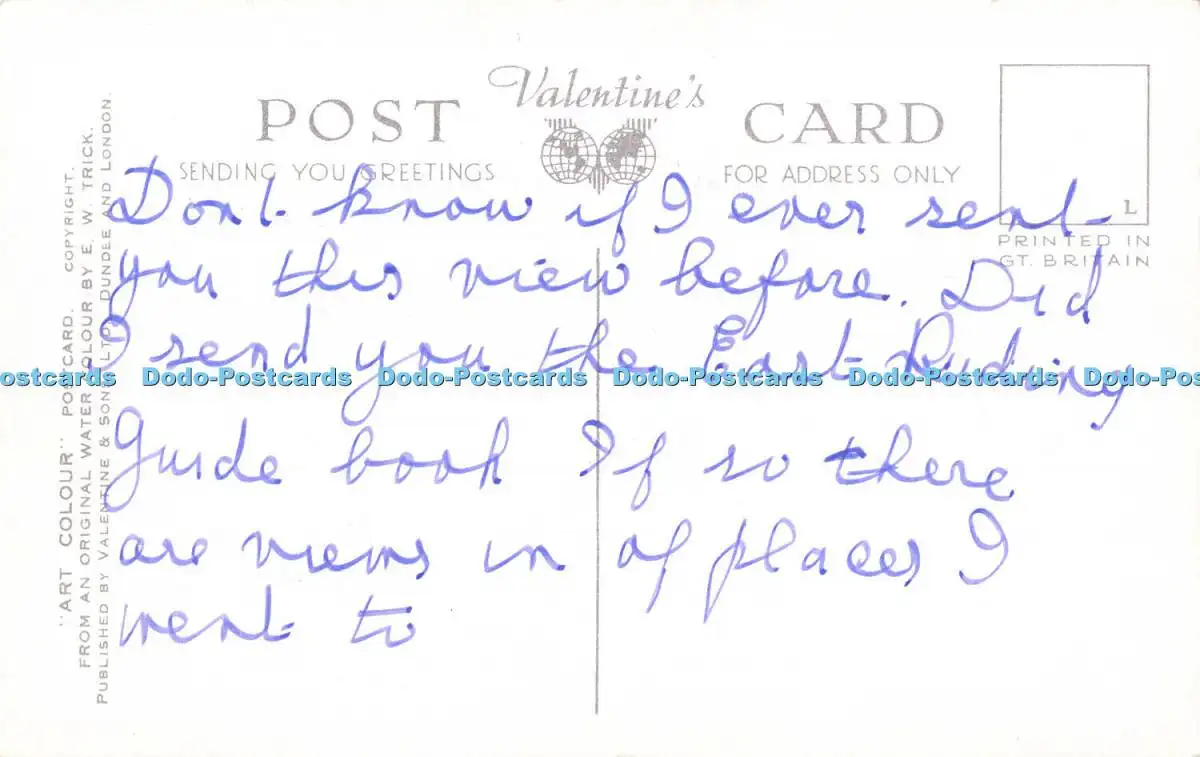 Valentine's
POST CARD
SENDING YOU GREETINGS
FOR ADDRESS ONLY
L
PRINTED IN
GT. BRITAIN
Dont know if I ever sent
you this view before. Did
I send you the East Riding
Guide book If so there
are views in of places I
went to
"ART COLOUR" POSTCARD. COPYRIGHT.
FROM AN ORIGINAL WATER COLOUR BY E. W. TRICK.
PUBLISHED BY VALENTINE & SONS LTD., DUNDEE AND LONDON.
ostcards Dodo-Postcards Dodo-Postcards Dodo-Postcards Dodo-Postcards Dodo-Pos